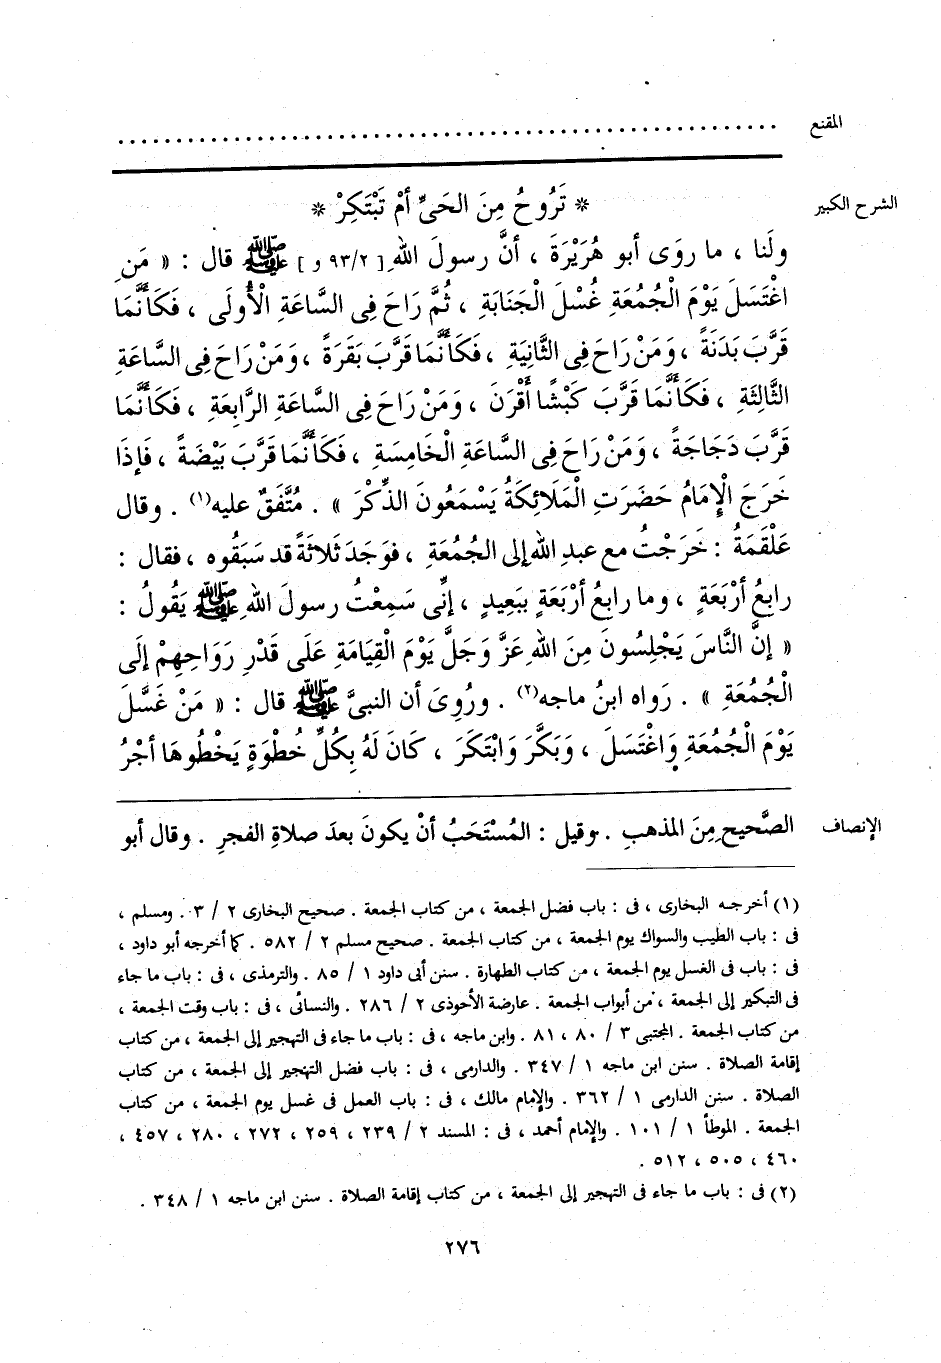 المقنع ...........................................................
الشرح الكبير * تَرُوحُ مِنَ الحَيِّ أمْ تَبْتَكِرْ *
ولَنا ، ما روَى أبو هُرَيْرَةَ ، أنَّ رسولَ اللهِ [ ٩٣/٢ و ] ﷺ قال : « مَنِ
اغْتَسَلَ يَوْمَ الْجُمُعَةِ غُسْلَ الْجَنَابَةِ ، ثُمَّ رَاحَ فِى السَّاعَةِ الْأُولَى ، فَكَأَنَّمَا
قَرَّبَ بَدَنَةً ، وَمَنْ رَاحَ فِى الثَّانِيَةِ ، فَكَأَنَّمَا قَرَّبَ بَقَرَةً ، وَمَنْ رَاحَ فِى السَّاعَةِ
الثَّالِثَةِ ، فَكَأَنَّمَا قَرَّبَ كَبْشًا أَقْرَنَ ، وَمَنْ رَاحَ فِى السَّاعَةِ الرَّابِعَةِ ، فَكَأَنَّمَا
قَرَّبَ دَجَاجَةً ، وَمَنْ رَاحَ فِى السَّاعَةِ الْخَامِسَةِ ، فَكَأَنَّمَا قَرَّبَ بَيْضَةً ، فَإِذَا
خَرَجَ الْإِمَامُ حَضَرَتِ الْمَلَائِكَةُ يَسْمَعُونَ الذِّكْرَ » . مُتَّفَقٌ عليه(١) . وقال
عَلْقَمَةُ : خَرَجْتُ مع عبدِ اللهِ إلى الجُمُعَةِ ، فوَجَدَ ثَلاثَةً قد سَبَقُوه ، فقال :
رابِعُ أرْبَعَةٍ ، وما رابِعُ أرْبَعَةٍ ببَعِيدٍ ، إنِّى سَمِعْتُ رسولَ اللهِ ﷺ يَقُولُ :
« إنَّ النَّاسَ يَجْلِسُونَ مِنَ اللهِ عَزَّ وَجَلَّ يَوْمَ الْقِيَامَةِ عَلَى قَدْرِ رَوَاحِهِمْ إلَى
الْجُمُعَةِ » . رَواه ابنُ ماجه(٢) . ورُوِىَ أن النبىَّ ﷺ قال : « مَنْ غَسَّلَ
يَوْمَ الْجُمُعَةِ وَاغْتَسَلَ ، وَبَكَّرَ وَابْتَكَرَ ، كَانَ لَهُ بِكُلِّ خُطْوَةٍ يَخْطُوهَا أجْرُ
الإنصاف الصَّحيحِ مِنَ المذهبِ . وقيل : المُسْتَحَبُ أنْ يكونَ بعدَ صلاةِ الفجرِ . وقال أبو
(١) أخرجه البخارى ، فى : باب فضل الجمعة ، من كتاب الجمعة . صحيح البخارى ٢ / ٣ . ومسلم ،
فى : باب الطيب والسواك يوم الجمعة ، من كتاب الجمعة . صحيح مسلم ٢ / ٥٨٢ . كما أخرجه أبو داود ،
فى : باب فى الغسل يوم الجمعة ، من كتاب الطهارة . سنن أبى داود ١ / ٨٥ . والترمذى ، فى : باب ما جاء
فى التبكير إلى الجمعة ، من أبواب الجمعة . عارضة الأحوذى ٢ / ٢٨٦ . والنسائى ، فى : باب وقت الجمعة ،
من كتاب الجمعة . المجتبى ٣ / ٨٠ ، ٨١ . وابن ماجه ، فى : باب ما جاء فى التهجير إلى الجمعة ، من كتاب
إقامة الصلاة . سنن ابن ماجه ١ / ٣٤٧ . والدارمى ، فى : باب فضل التهجير إلى الجمعة ، من كتاب
الصلاة . سنن الدارمى ١ / ٣٦٢ . والإمام مالك ، فى : باب العمل فى غسل يوم الجمعة ، من كتاب
الجمعة . الموطأ ١ / ١٠١ . والإمام أحمد ، فى : المسند ٢ / ٢٣٩ ، ٢٥٩ ، ٢٧٢ ، ٢٨٠ ، ٤٥٧ ،
٤٦٠ ، ٥٠٥ ، ٥١٢ .
(٢) فى : باب ما جاء فى التهجير إلى الجمعة ، من كتاب إقامة الصلاة . سنن ابن ماجه ١ / ٣٤٨ .
٢٧٦